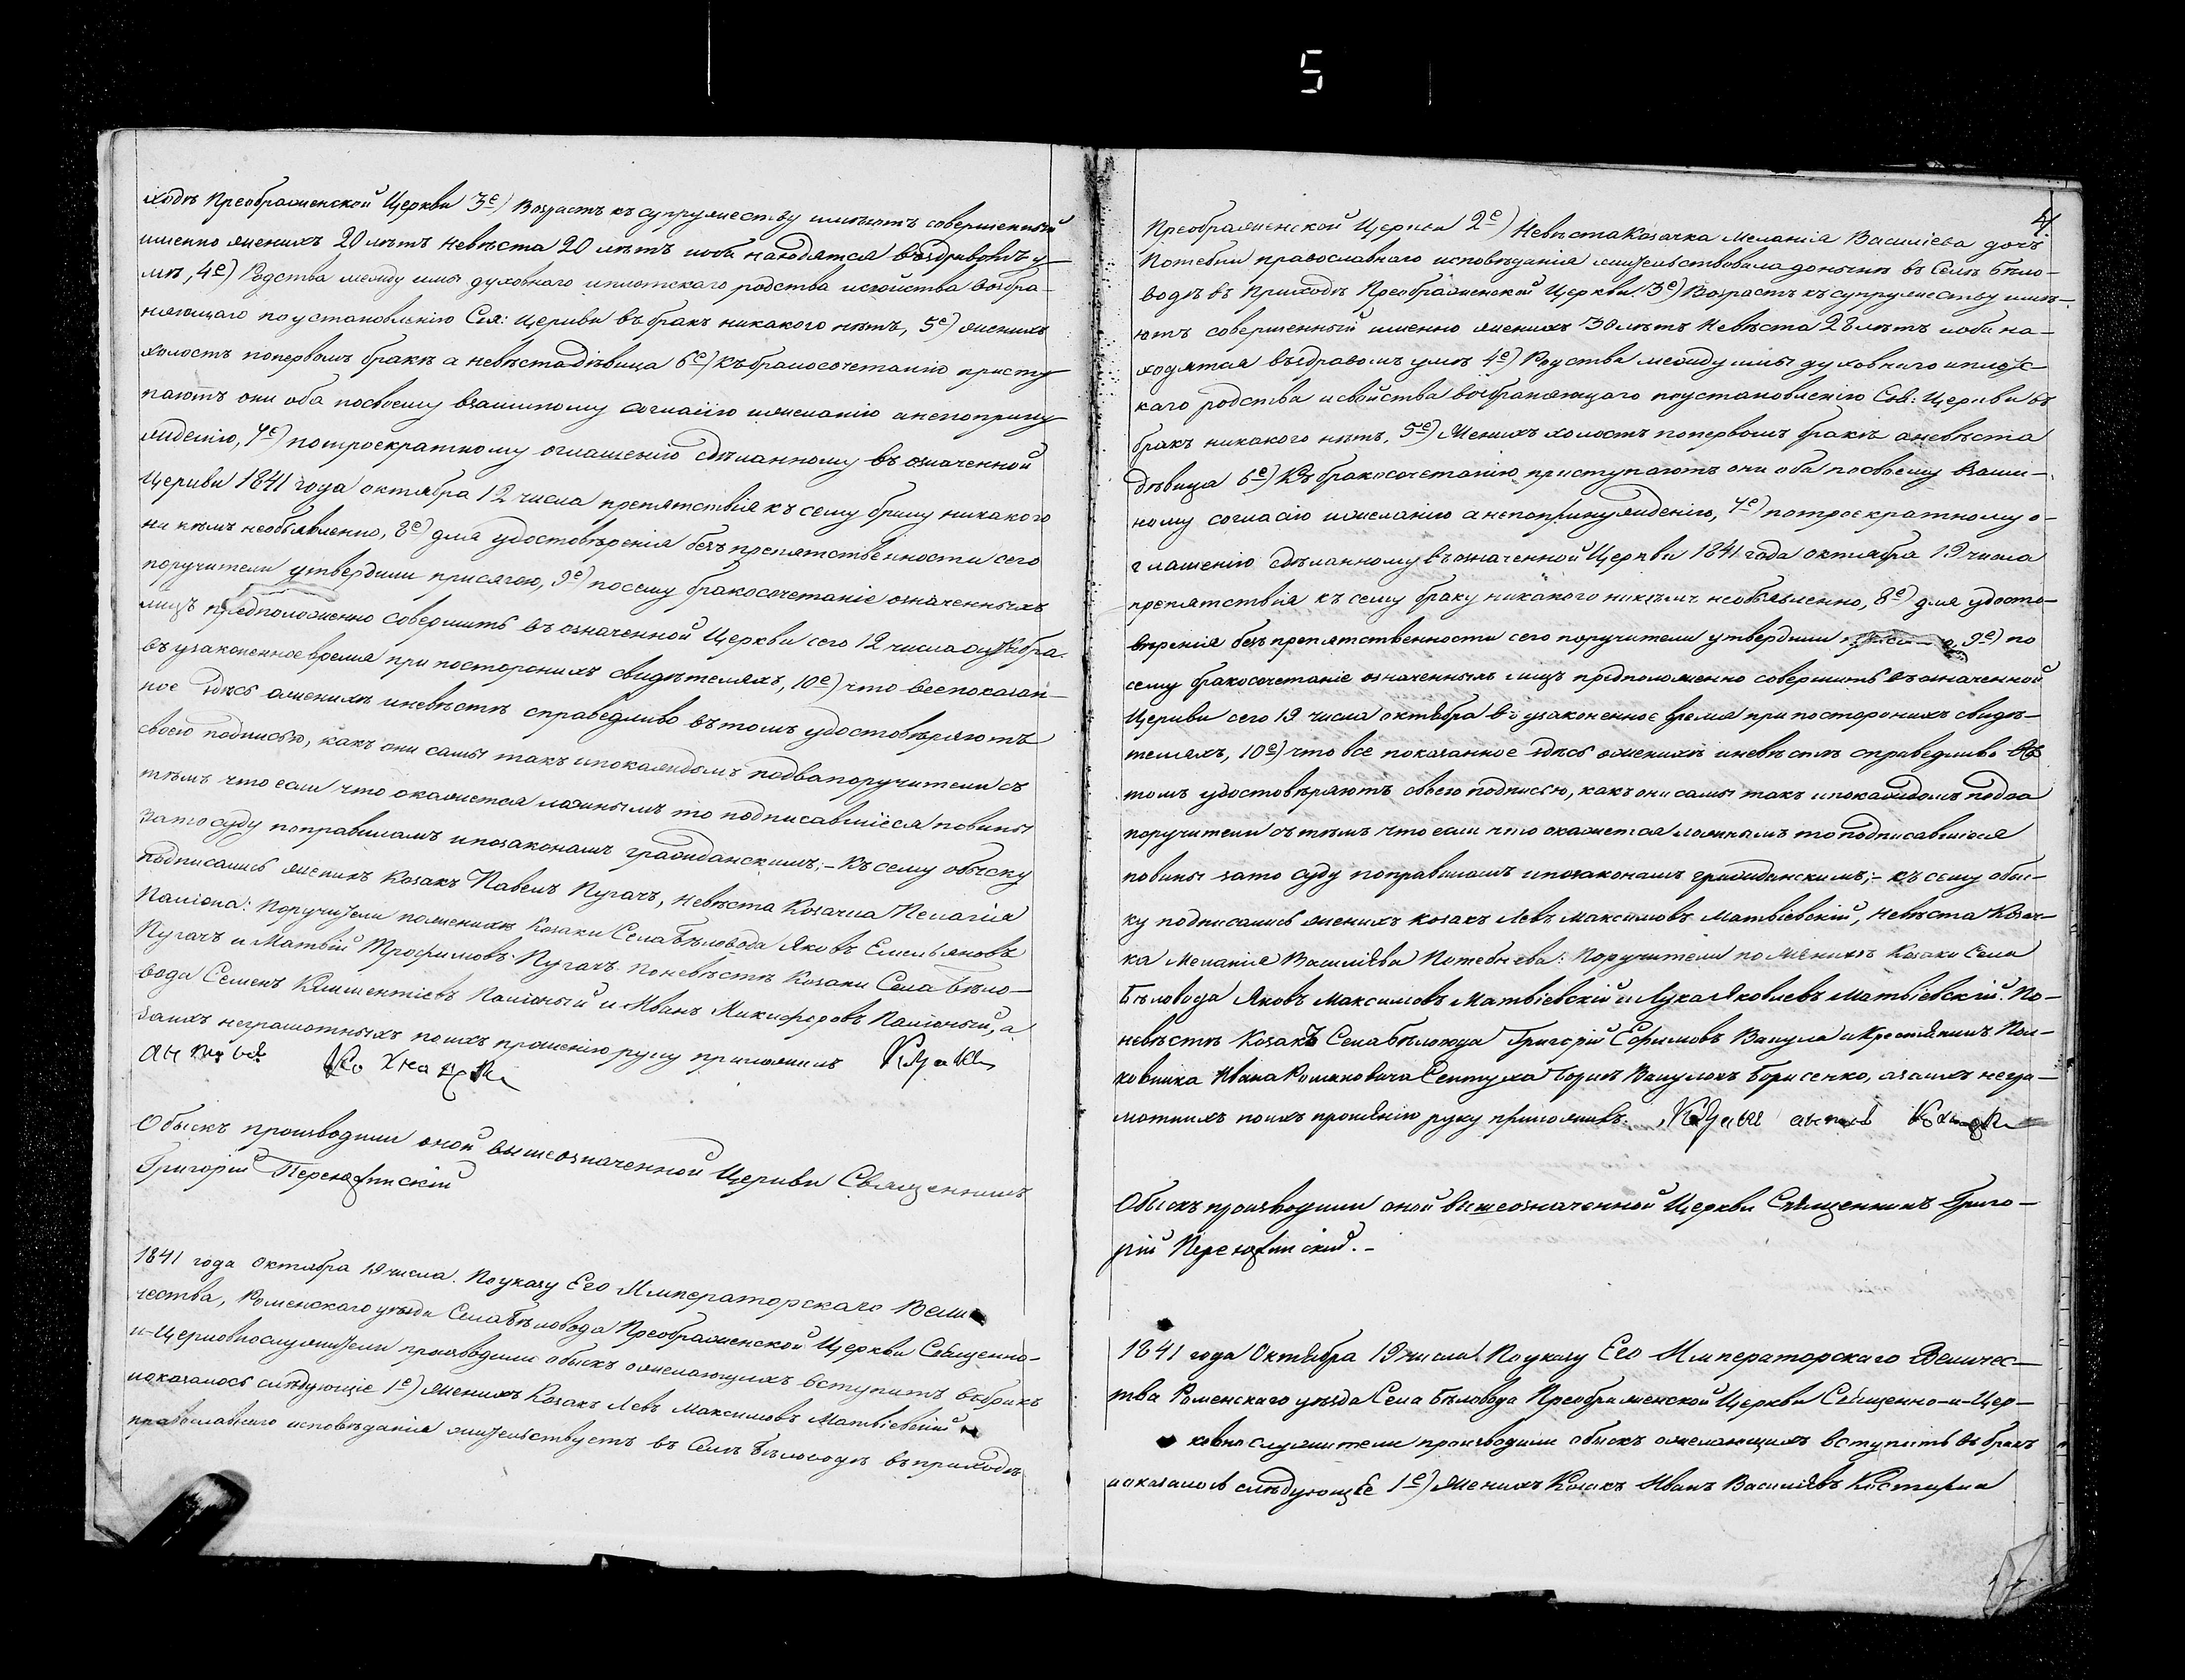 5
ходѣ Преображенской Церкви 3е) Возрастъ къ супружеству имѣютъ совершенный
именно женихъ 20 лѣтъ невѣста 20 лѣтъ и оба находятся въ здравомъ у-
мѣ, 4е) Родства между ими духовнаго и плотскаго родства и свойства возбра-
няющаго по установленію Свя: Церкви въ бракъ никакого нѣтъ, 5е) женихъ
холостъ по первомъ бракѣ а невѣста дѣвица 6е) Къ бракосочетанію присту
паютъ они оба по своему взаимному согласію и желанію а не по прину
жденію, 7е) по троекратному оглашенію сдѣланному въ означенной
Церкви 1841 года октября 12 числа препятствія къ сему браку никакого
ни кѣмъ необъявленно, 8е) для удостовѣренія безъ препятственности сего
поручители утвердили присягою, 9е) по сему бракосочетаніе означенныхъ
лицъ предположенно совершить въ означенной Церкви сего 12 числа октября
въ узаконенное время при постороннихъ свидѣтеляхъ, 10е) что все показан-
ное здѣсь о женихѣ и невѣстѣ справедливо въ томъ удостовѣряютъ
своею подписью, какъ они самы такъ и по каждомъ по два поручители съ
тѣмъ что если что окажется ложнымъ то подписавшіеся повины
за то суду по правиламъ и по законамъ гражданскимъ; – Къ сему обыску
подписались женихъ Козакъ Павелъ Пугачъ, невѣста Козачка Пелагія
Поручители по женихѣ Козаки Села Бѣловода Яковъ Емельяновъ
Пугачъ и Матвій Трофимовъ Пугачъ по невѣстѣ Козаки Села Бѣло-
вода Семенъ Климентіевъ и Иванъ Никифоровъ а
за ихъ неграмотныхъ по ихъ прошенію руку приложилъ
Обыскъ производили оной вышеозначенной Церкви Священникъ
Григорій
1841 года Октября 19 числа. По указу Его Императорскаго Вели
чества, Роменскаго уѣзда Села Бѣловода Преображенской Церкви Священно-
и-Церковнослужители производили обыскъ о желающихъ вступить въ бракъ
и оказалось слѣдующіе 1е) женихъ Козакъ Левъ Максимовъ Матвіевскій
православнаго исповѣданія жительствуетъ въ Селѣ Бѣловодѣ въ приходѣ
4
Преображенской Церкви 2е) Невѣста Козачка Меланія Василіева дочь
Потебни православнаго исповѣданія жительствовала до нынѣ въ Селѣ Бѣло-
водѣ въ Приходѣ Преображенской Церкви. 3е) Возрастъ къ супружеству имѣ-
ютъ совершенный именно женихъ 30 лѣтъ Невѣста 28 лѣтъ и оба на-
ходятся въ здравомъ умѣ 4е) Родства между имы духовнаго и плотс-
каго родства и свойства возбраняющаго по установленію Свя: Церкви въ
бракъ никакого нѣтъ, 5е) Женихъ холостъ по первомъ бракѣ а невѣста
дѣвица 6е) Къ бракосочетанію приступаютъ они оба по своему взаим-
ному согласію и желанію а не по принужденію, 7е) по троекратному о-
глашенію сдѣланному въ означенной Церкви 1841 года октября 19 числа
препятствія къ сему браку никакого никѣмъ необъявленно, 8е) для удосто-
вѣренія безъ препятственности сего поручители утвердили 9е) по
сему бракосочетаніе означенныхъ лицъ предположенно совершить въ означенной
Церкви сего 19 числа октября въ узаконенное время при постороннихъ свидѣ-
теляхъ, 10е) что все показанное здѣсь о женихѣ и невѣстѣ справедливо въ
томъ удостовѣряютъ своею подписью, какъ они самы такъ и по каждомъ по два
поручители съ тѣмъ что если что окажется ложнымъ то подписавшіеся
повины за то суду по правиламъ и по законамъ гражданскимъ; – къ сему обыс-
ку подписались женихъ козакъ Левъ Максимовъ Матвіевскій, невѣста Козач-
ка Меланія Василіева Потебнева: Поручители по женихѣ Козаки Села
Бѣловода Яковъ Максимовъ Матвіевскій и Лука Яковлевъ Матвіевскій. По-
невѣстѣ Козакъ Села Бѣловода Григорій Ефимовъ Вакула и Крестянинъ Пол-
ковника Ивана Романовича Борисенко, а за ихъ негра-
мотныхъ по ихъ прошенію руку приложивъ.
Обыскъ производили оной вышеозначенной Церкви Священникъ Григо-
рій
1841 года Октября 19 числа. По указу Его Императорскаго Величес-
тва Роменскаго уѣзда Села Бѣловода Преображенской Церкви Священно-и-Цер-
ковно служители производили обыскъ о желающихъ вступить въ бракъ
и оказалось слѣдующее 1е) Женихъ Козакъ Иванъ Василіевъ